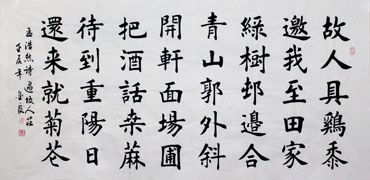 故人具鷄黍
邀我至田家
綠樹邨邊合
青山郭外斜
開軒面場圃
把酒話桑蔴
待到重陽日
還来就菊苍
孟浩然詩過故人莊